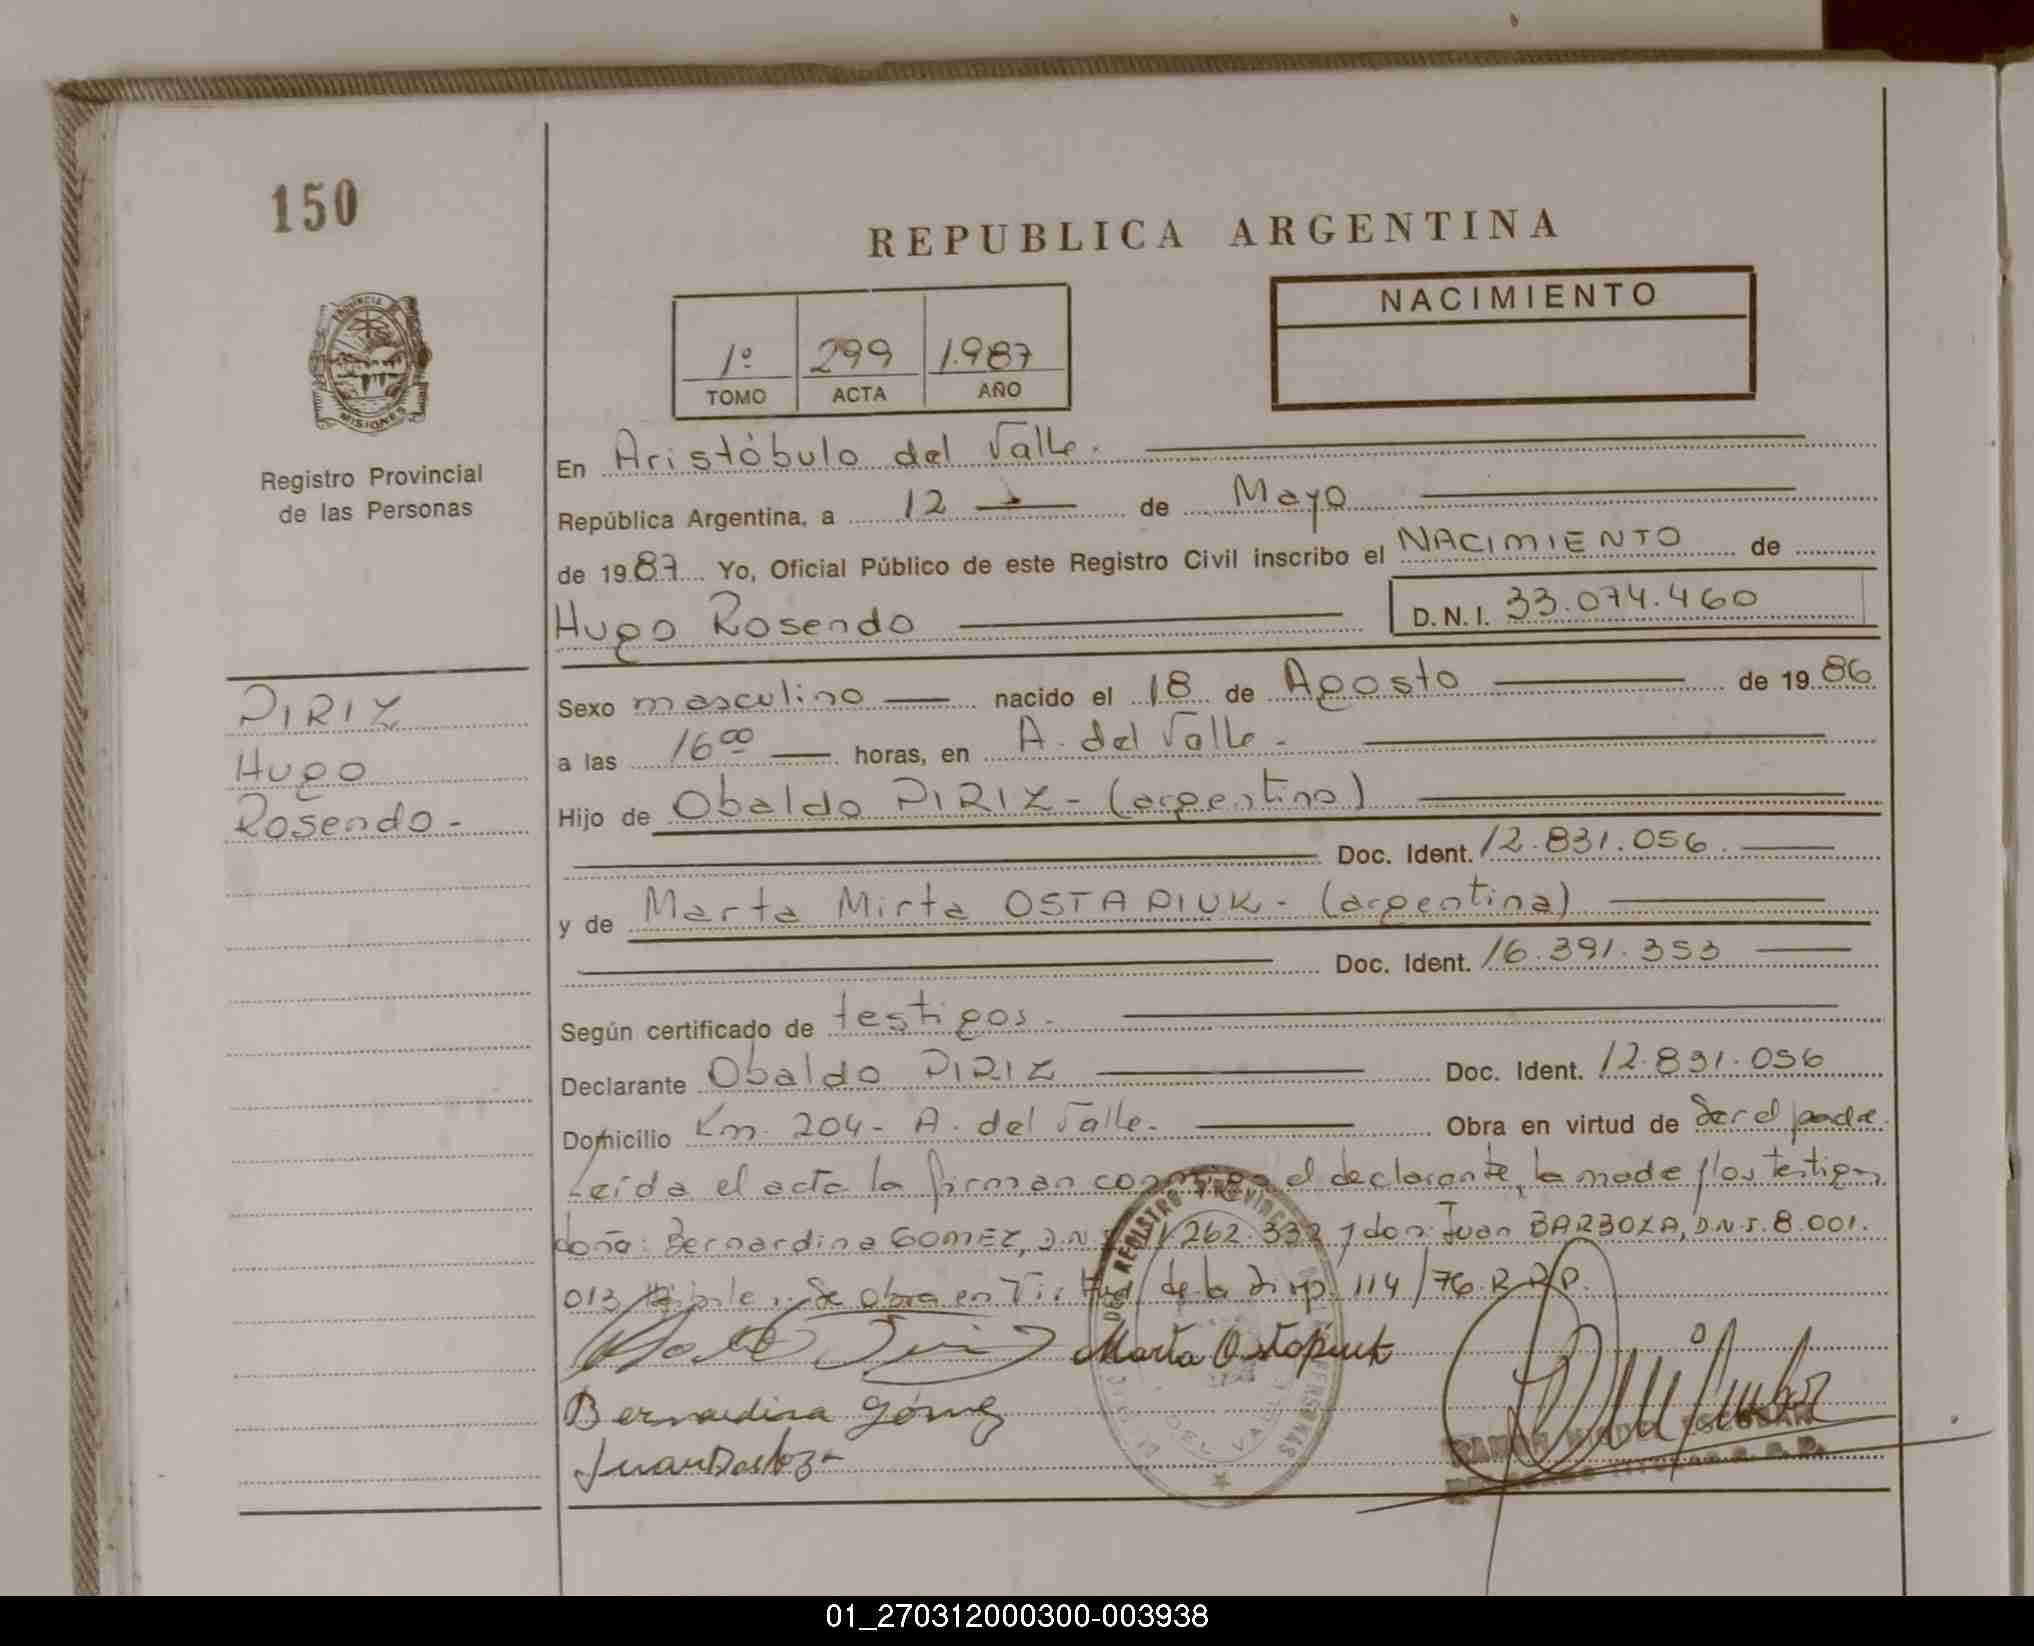 150
REPUBLICA ARGENTINA
PROVINCIA DE
MISIONES
Registro Provincial
de las Personas
1º 299 1.987
TOMO ACTA AÑO
NACIMIENTO
En Aristóbulo del Valle.
República Argentina, a 12 de Mayo
de 1987 Yo, Oficial Público de este Registro Civil inscribo el NACIMIENTO de
Hugo Rosendo D.N.I. 33.074.460
PIRIZ
Hugo
Rosendo -
Sexo masculino nacido el 18 de Agosto de 1986
a las 16⁰⁰ horas, en A. del Valle -
Hijo de Obaldo PIRIZ - (argentino)
Doc. Ident. 12.831.056.
y de Marta Mirta OSTAPIUK - (argentina)
Doc. Ident. 16.391.353
Según certificado de testigos.
Declarante Obaldo PIRIZ Doc. Ident. 12.831.056
Domicilio Km. 204 - A. del Valle. Obra en virtud de Ser el padre.
Leída el acta la firman conmigo el declarante, la madre y los testigos
doña: Bernardina GOMEZ, D.N.I. 262.332 y don: Juan BARBOZA, D.N.I. 8.001.
013 Se obra en Virtud de la Disp. 114/76.R.P.P.
Marta Ostapiuk
Bernardina Gómez
Juan Barboza
DEL VALLE
01_270312000300-003938